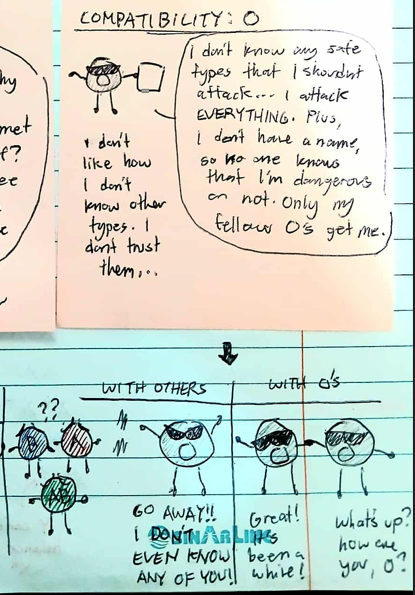 COMPATIBILITY: O
I don't know any safe
types that I shouldn't
attack... I attack
EVERYTHING. Plus,
I don't have a name,
so no one knows
that I'm dangerous
or not. Only my
fellow O's get me.
I don't
like how
I don't
know other
types. I
don't trust
them...
hy
met
f?
ee
WITH OTHERS
WITH O'S
??
GO AWAY!!
I DON'T
EVEN KNOW
ANY OF YOU!
Great!
It's
been a
while!
What's up?
how are
you, O?
BINARLINE